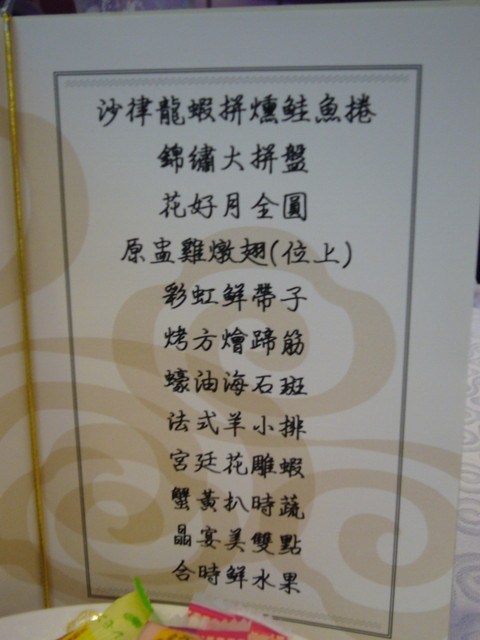 沙律龍蝦拼燻鮭魚捲
錦繡大拼盤
花好月全圓
原盅雞燉翅(位上)
彩虹鮮帶子
烤方燴蹄筋
蠔油海石斑
法式羊小排
宮廷花雕蝦
蟹黃扒時蔬
晶宴美雙點
合時鮮水果